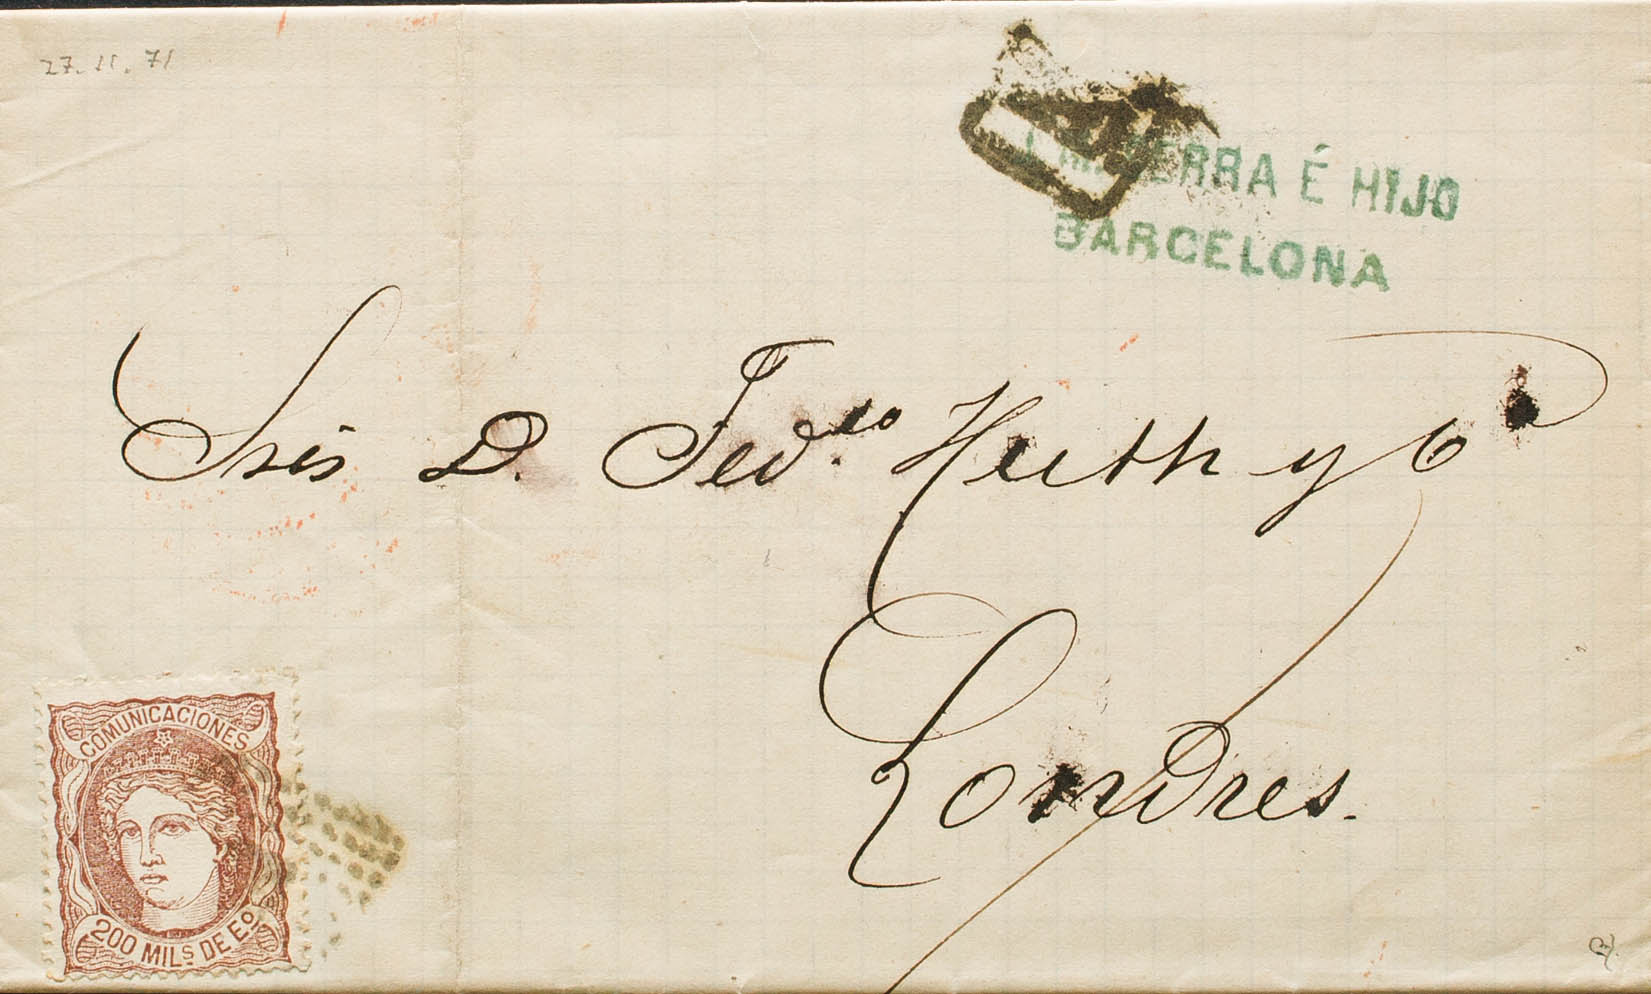 27.11.71
SERRA É HIJO
BARCELONA
Sres D. Fed.co Huth y Ca
Londres.
COMUNICACIONES
200 MILS DE Eo